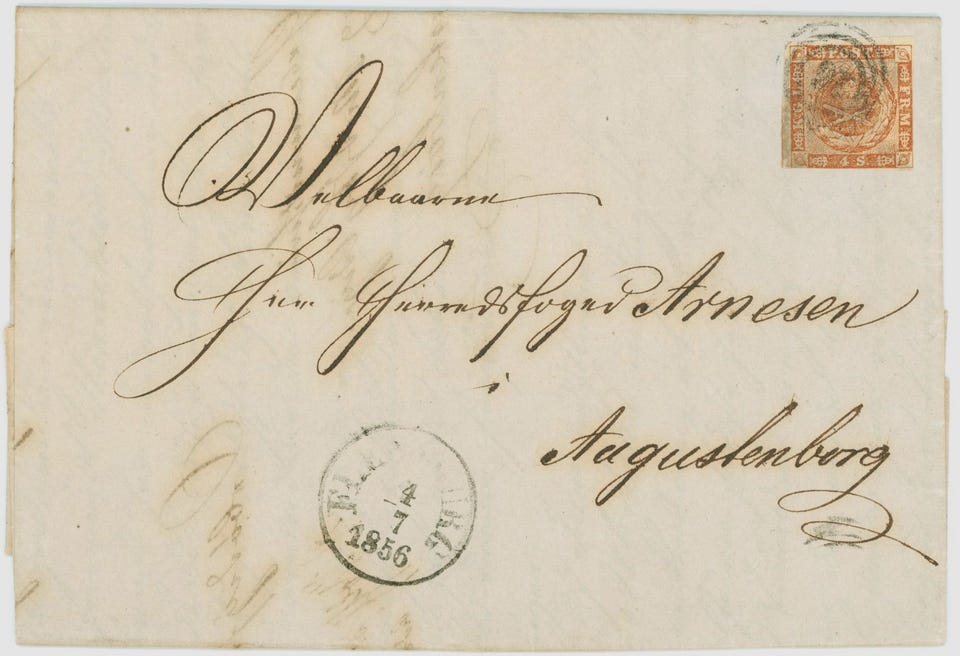 KGL POST FRM
4 S.
Velbaarne
Herr Herredsfoged Arnesen
i
Augustenborg
FLENSBURG
4
7
1856